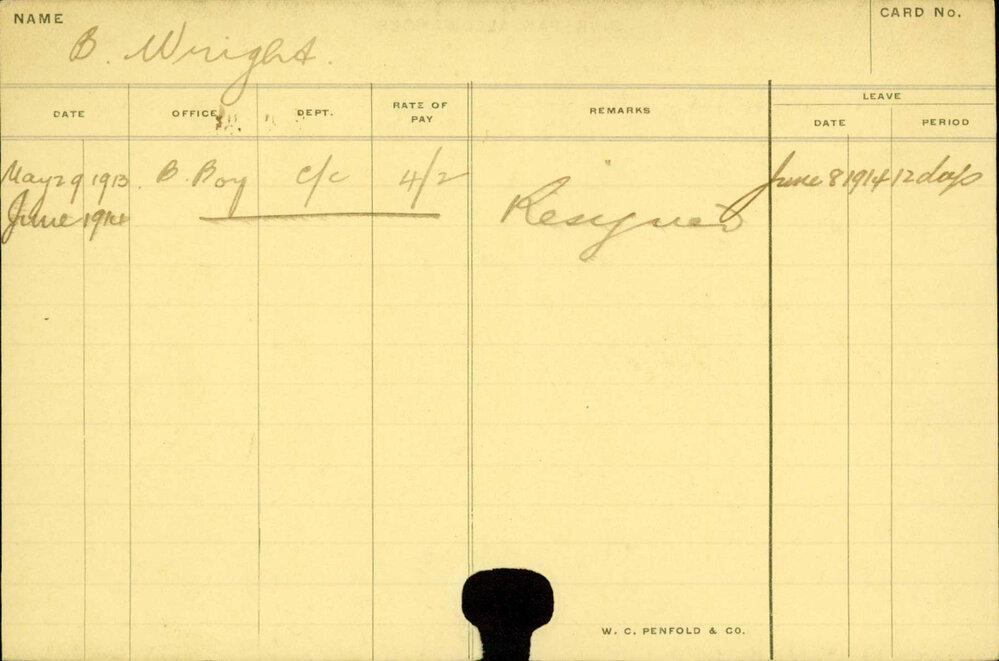 NAME
CARD No.
B. Wright.
DATE OFFICE DEPT. RATE OF PAY REMARKS LEAVE
DATE PERIOD
May 29 1913 B. Boy C/C 4/2 June 8 1914 12 days
June 1914 Resigned
W. C. PENFOLD & CO.